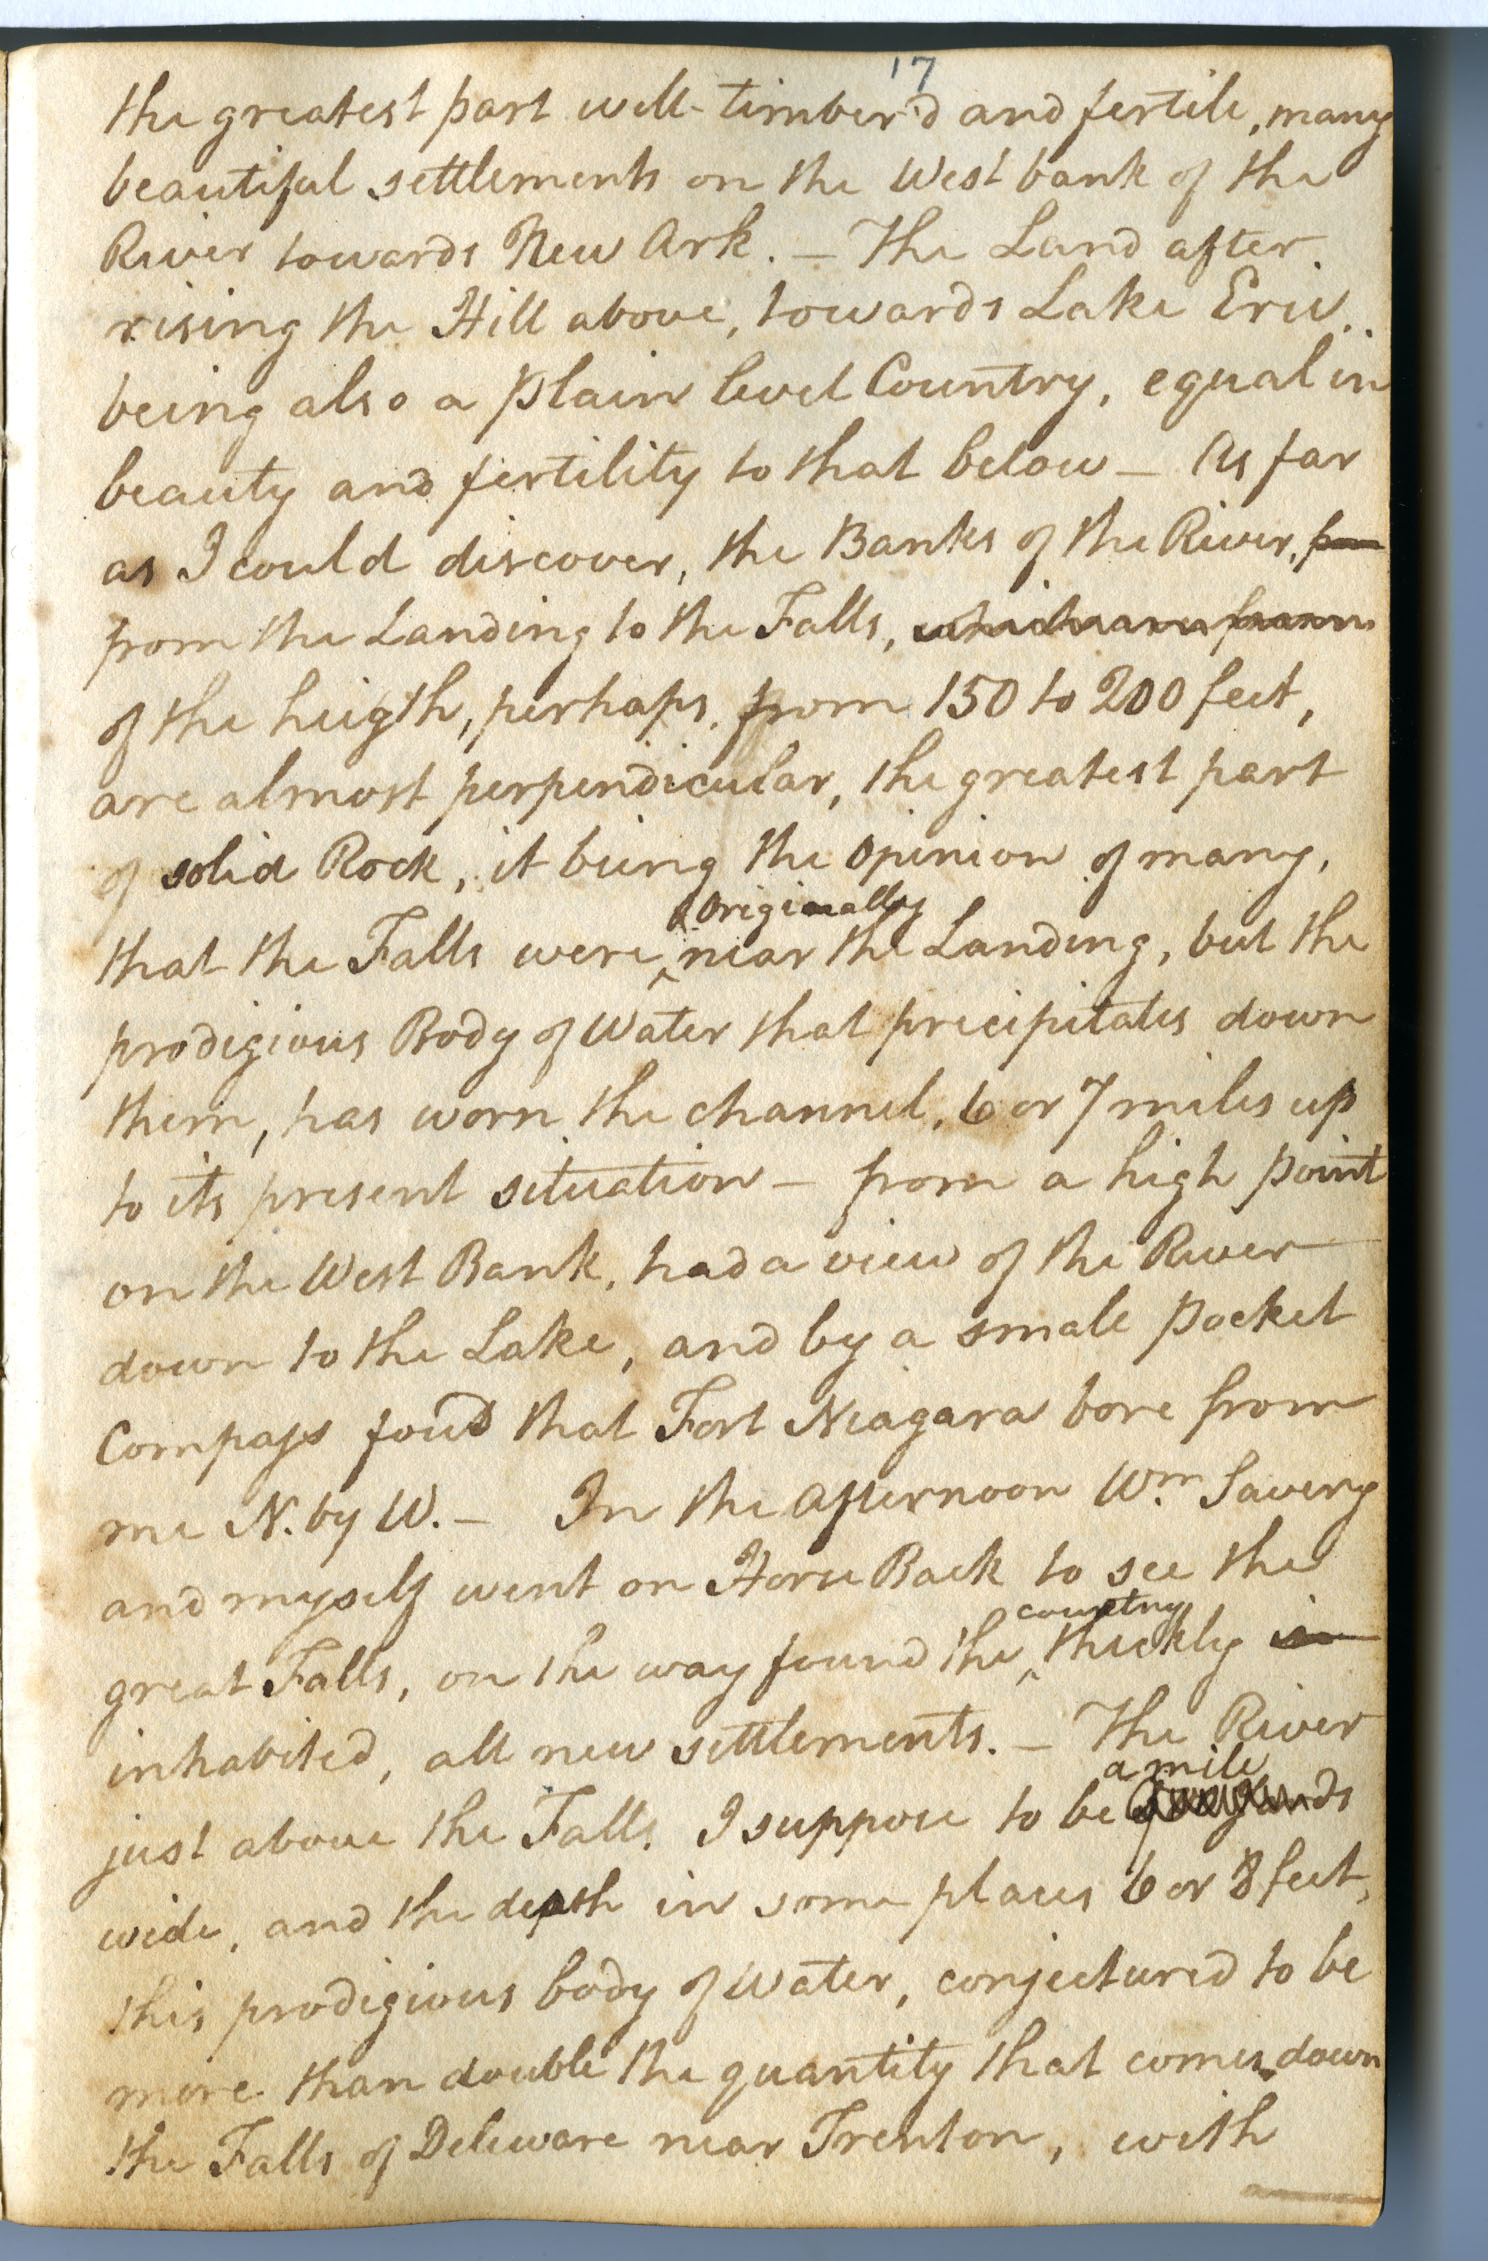 17
the greatest part well-timber'd and fertile, many
beautiful settlements on the West bank of the
River towards New Ark. – The Land after
rising the Hill above, towards Lake Erie.
being also a plain level Country, equal in
beauty and fertility to that below – As far
as I could discover, the Banks of the River,
from the Landing to the Falls, which are from
of the heigth, perhaps, from 150 to 200 feet,
are almost perpendicular, the greatest part
of solid Rock, it being the opinion of many,
originally
that the Falls were ‸ near the Landing, but the
prodigious Body of Water that precipitates down
them, has worn the channel, 6 or 7 miles up
to its present situation – from a high point
on the West Bank, had a view of the River
down to the Lake, and by a small pocket
Compass fou'd that Fort Niagara bore from
me N. by W. – In the afternoon Wm. Savery
and myself went on Horse Back to see the
country
great Falls, on the way found the ‸ thickly in
inhabited, all new settlements. – The River
a mile
just above the Falls, I suppose to be yards
wide, and the depth in some places 6 or 8 feet,
this prodigious body of Water, conjectured to be
more than double the quantity that comes down
the Falls of Deleware near Trenton, with